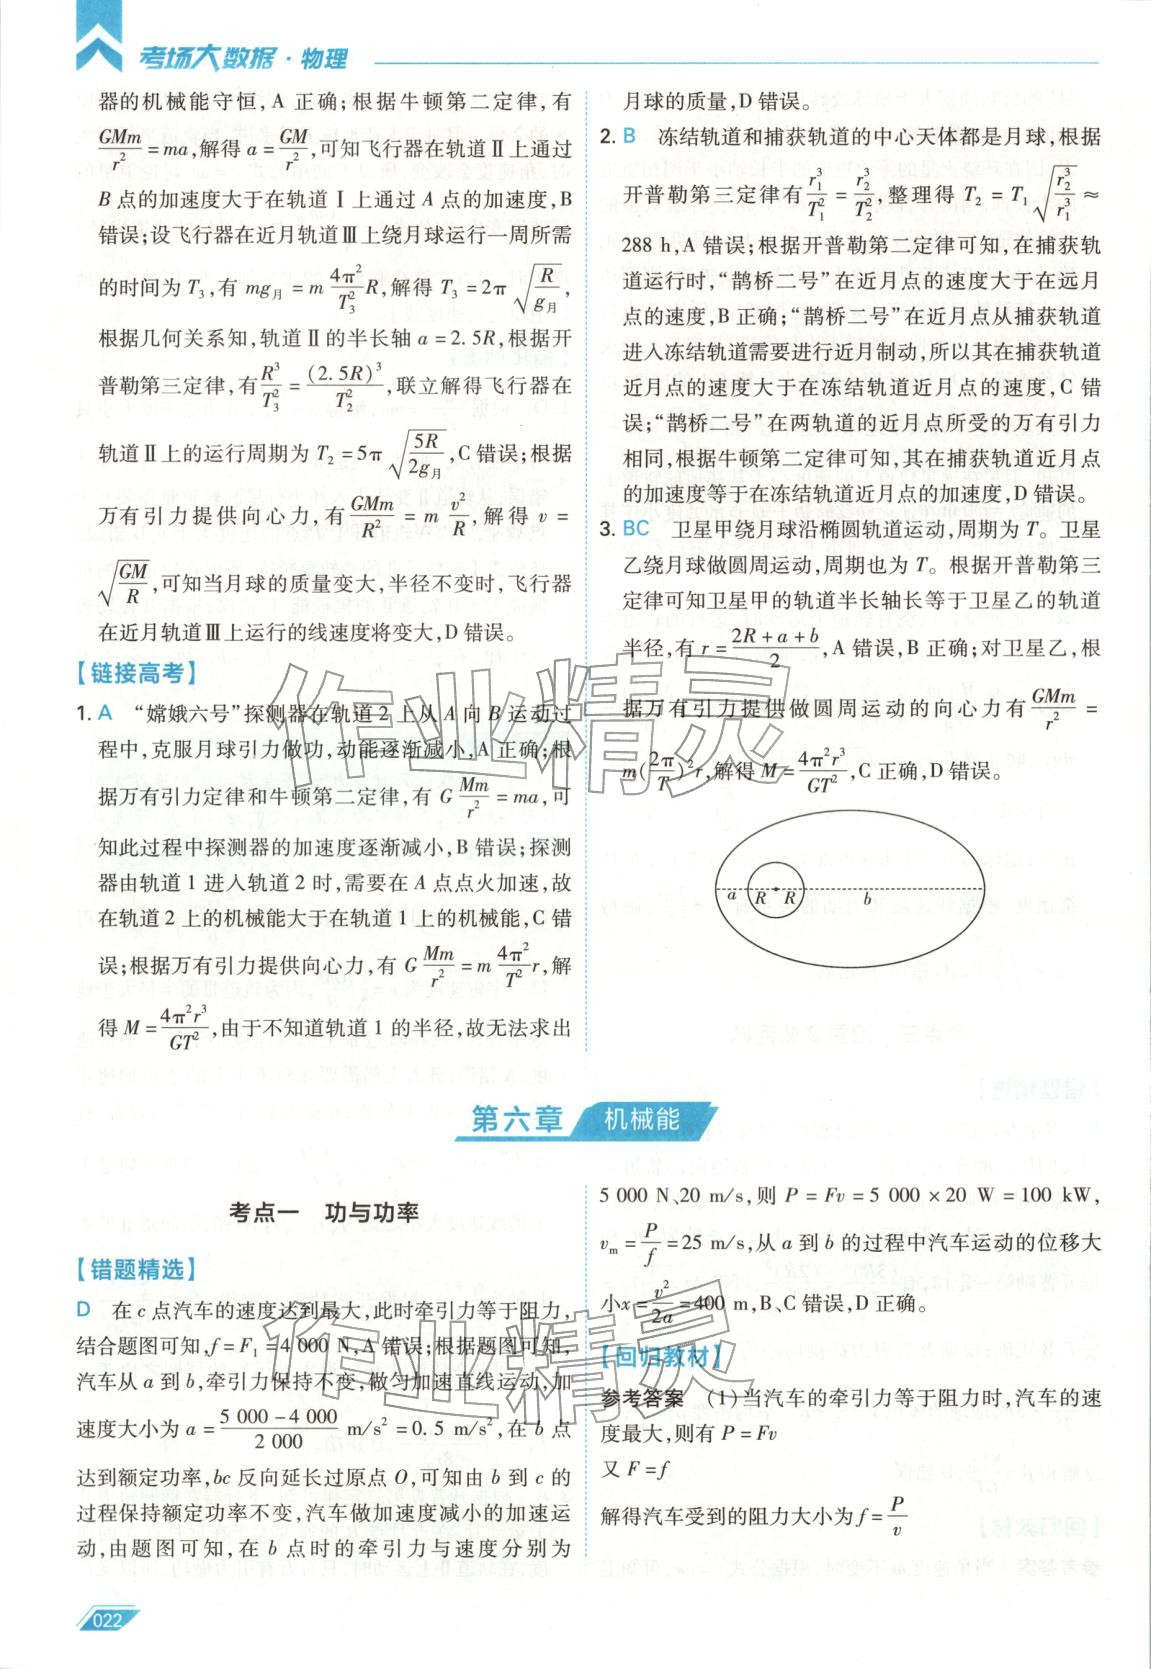 考场大数据·物理
器的机械能守恒,A 正确;根据牛顿第二定律,有
GMm/r² = ma,解得 a = GM/r²,可知飞行器在轨道Ⅱ上通过
B 点的加速度大于在轨道Ⅰ上通过 A 点的加速度,B
错误;设飞行器在近月轨道Ⅲ上绕月球运行一周所需
的时间为 T₃,有 mg月 = m 4π²/T₃² R,解得 T₃ = 2π √(R/g月),
根据几何关系知,轨道Ⅱ的半长轴 a = 2.5R,根据开
普勒第三定律,有 R³/T₃² = (2.5R)³/T₂²,联立解得飞行器在
轨道Ⅱ上的运行周期为 T₂ = 5π √(5R/2g月),C 错误;根据
万有引力提供向心力,有 GMm/R² = m v²/R,解得 v =
√(GM/R),可知当月球的质量变大,半径不变时,飞行器
在近月轨道Ⅲ上运行的线速度将变大,D 错误。
【链接高考】
1. A “嫦娥六号”探测器在轨道 2 上从 A 向 B 运动过
程中,克服月球引力做功,动能逐渐减小,A 正确;根
据万有引力定律和牛顿第二定律,有 G Mm/r² = ma,可
知此过程中探测器的加速度逐渐减小,B 错误;探测
器由轨道 1 进入轨道 2 时,需要在 A 点点火加速,故
在轨道 2 上的机械能大于在轨道 1 上的机械能,C 错
误;根据万有引力提供向心力,有 G Mm/r² = m 4π²/T² r,解
得 M = 4π²r³/GT²,由于不知道轨道 1 的半径,故无法求出
月球的质量,D 错误。
2. B 冻结轨道和捕获轨道的中心天体都是月球,根据
开普勒第三定律有 r₁³/T₁² = r₂³/T₂²,整理得 T₂ = T₁ √(r₂³/r₁³) ≈
288 h,A 错误;根据开普勒第二定律可知,在捕获轨
道运行时,“鹊桥二号”在近月点的速度大于在远月
点的速度,B 正确;“鹊桥二号”在近月点从捕获轨道
进入冻结轨道需要进行近月制动,所以其在捕获轨道
近月点的速度大于在冻结轨道近月点的速度,C 错
误;“鹊桥二号”在两轨道的近月点所受的万有引力
相同,根据牛顿第二定律可知,其在捕获轨道近月点
的加速度等于在冻结轨道近月点的加速度,D 错误。
3. BC 卫星甲绕月球沿椭圆轨道运动,周期为 T。卫星
乙绕月球做圆周运动,周期也为 T。根据开普勒第三
定律可知卫星甲的轨道半长轴长等于卫星乙的轨道
半径,有 r = (2R+a+b)/2,A 错误,B 正确;对卫星乙,根
据万有引力提供做圆周运动的向心力有 GMm/r² =
m(2π/T)²r,解得 M = 4π²r³/GT²,C 正确,D 错误。
a R R b
第六章 机械能
考点一 功与功率
【错题精选】
D 在 c 点汽车的速度达到最大,此时牵引力等于阻力,
结合题图可知,f = F₁ = 4 000 N,A 错误;根据题图可知,
汽车从 a 到 b,牵引力保持不变,做匀加速直线运动,加
速度大小为 a = (5 000-4 000)/2 000 m/s² = 0.5 m/s²,在 b 点
达到额定功率,bc 反向延长过原点 O,可知由 b 到 c 的
过程保持额定功率不变,汽车做加速度减小的加速运
动,由题图可知,在 b 点时的牵引力与速度分别为
5 000 N、20 m/s,则 P = Fv = 5 000 × 20 W = 100 kW,
vₘ = P/f = 25 m/s,从 a 到 b 的过程中汽车运动的位移大
小 x = v²/2a = 400 m,B、C 错误,D 正确。
【回归教材】
参考答案 (1)当汽车的牵引力等于阻力时,汽车的速
度最大,则有 P = Fv
又 F = f
解得汽车受到的阻力大小为 f = P/v
022
作业精灵
作业精灵